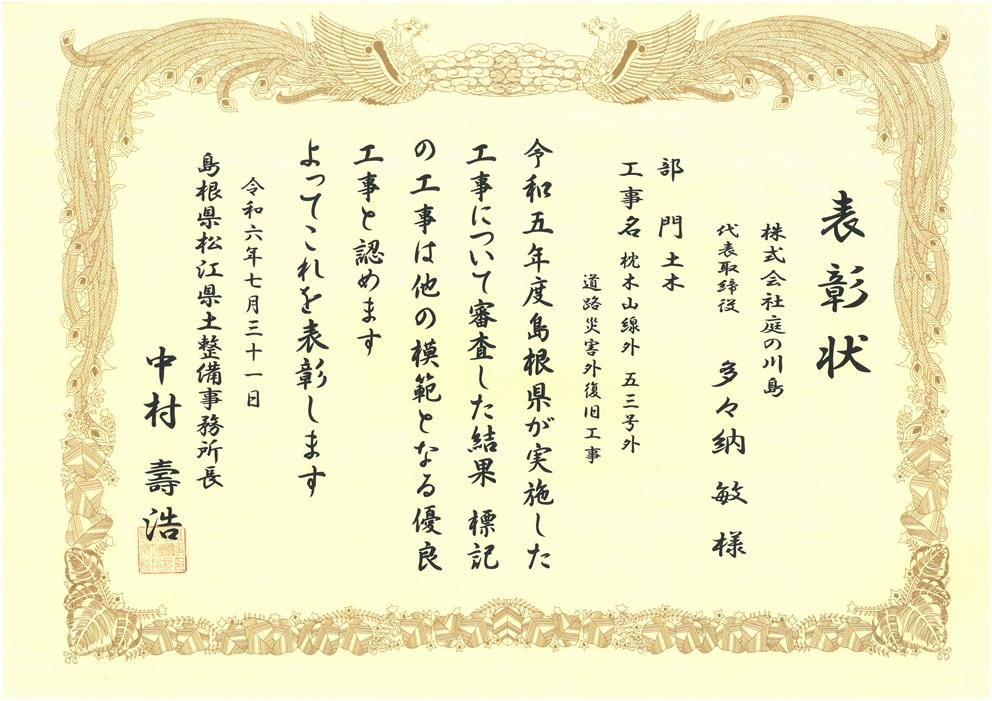 表彰状
株式会社庭の川島
代表取締役 多々納 敏 様
部 門 土木
工事名 枕木山線外 五三号外
道路災害外復旧工事
令和五年度島根県が実施した
工事について審査した結果 標記
の工事は他の模範となる優良
工事と認めます
よってこれを表彰します
令和六年七月三十一日
島根県松江県土整備事務所長
中村 壽浩